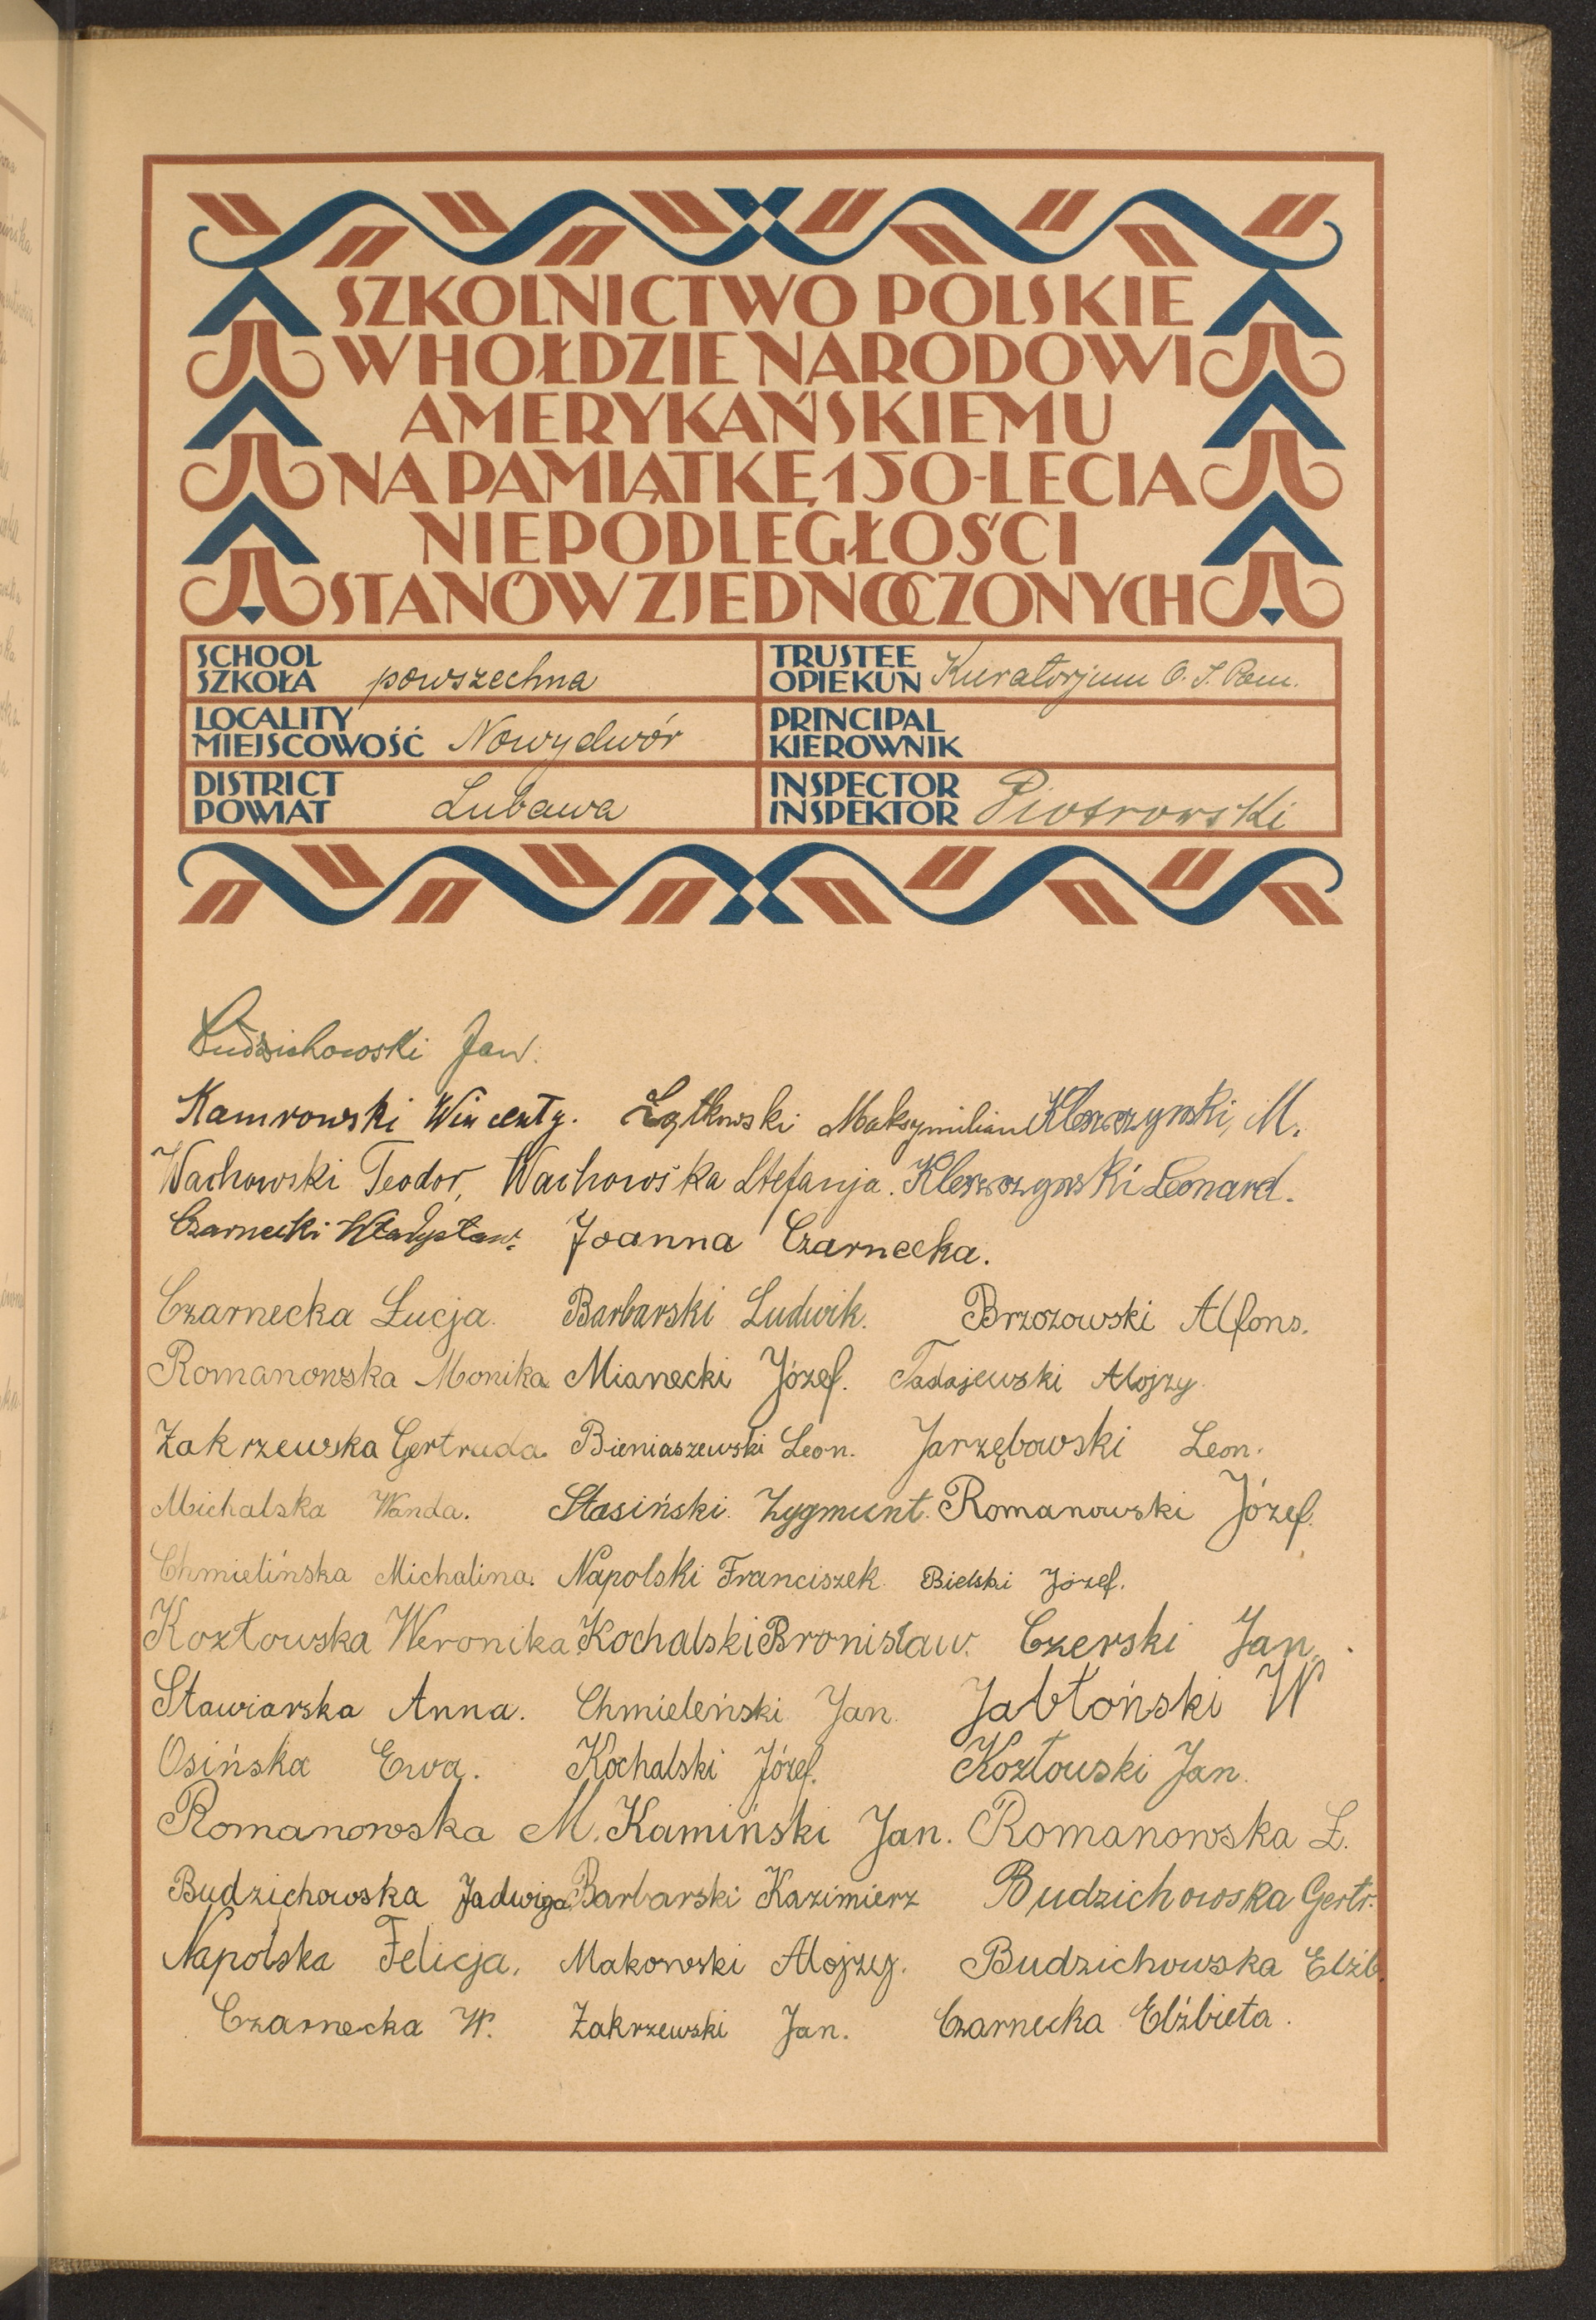 SZKOLNICTWO POLSKIE
W HOŁDZIE NARODOWI
AMERYKAŃSKIEMU
NA PAMIĄTKĘ 150-LECIA
NIEPODLEGŁOŚCI
STANÓW ZJEDNOCZONYCH
SCHOOL
SZKOŁA powszechna
TRUSTEE
OPIEKUN Kuratorjum O. S. Pom.
LOCALITY
MIEJSCOWOŚĆ Nowydwór
PRINCIPAL
KIEROWNIK
DISTRICT
POWIAT Lubawa
INSPECTOR
INSPEKTOR Piotrowski
Budzichowski Jan.
Kamrowski Wincenty. Łątkowski Maksymilian M.
Wachowski Teodor, Wachowska Stefanja. Leonard.
Czarnecki Władysław. Joanna Czarnecka.
Czarnecka Łucja. Barbarski Ludwik. Brzozowski Alfons.
Romanowska Monika Mianecki Józef. Tadajewski Alojzy.
Zakrzewska Gertruda. Bieniaszewski Leon. Jarzębowski Leon.
Michalska Wanda. Stasiński. Zygmunt. Romanowski Józef.
Chmielińska Michalina. Napolski Franciszek Bielski Józef.
Kozłowska Weronika Kochalski Bronisław. Czerski Jan.
Stawiarska Anna. Chmieleński Jan. Jabłoński W
Osińska Ewa. Kochalski Józef. Kozłowski Jan.
Romanowska M. Kamiński Jan. Romanowska Ł.
Budzichowska Jadwiga Barbarski Kazimierz Budzichowska Gertr.
Napolska Felicja, Makowski Alojzy. Budzichowska Elżb.
Czarnecka W. Zakrzewski Jan. Czarnecka Elżbieta.